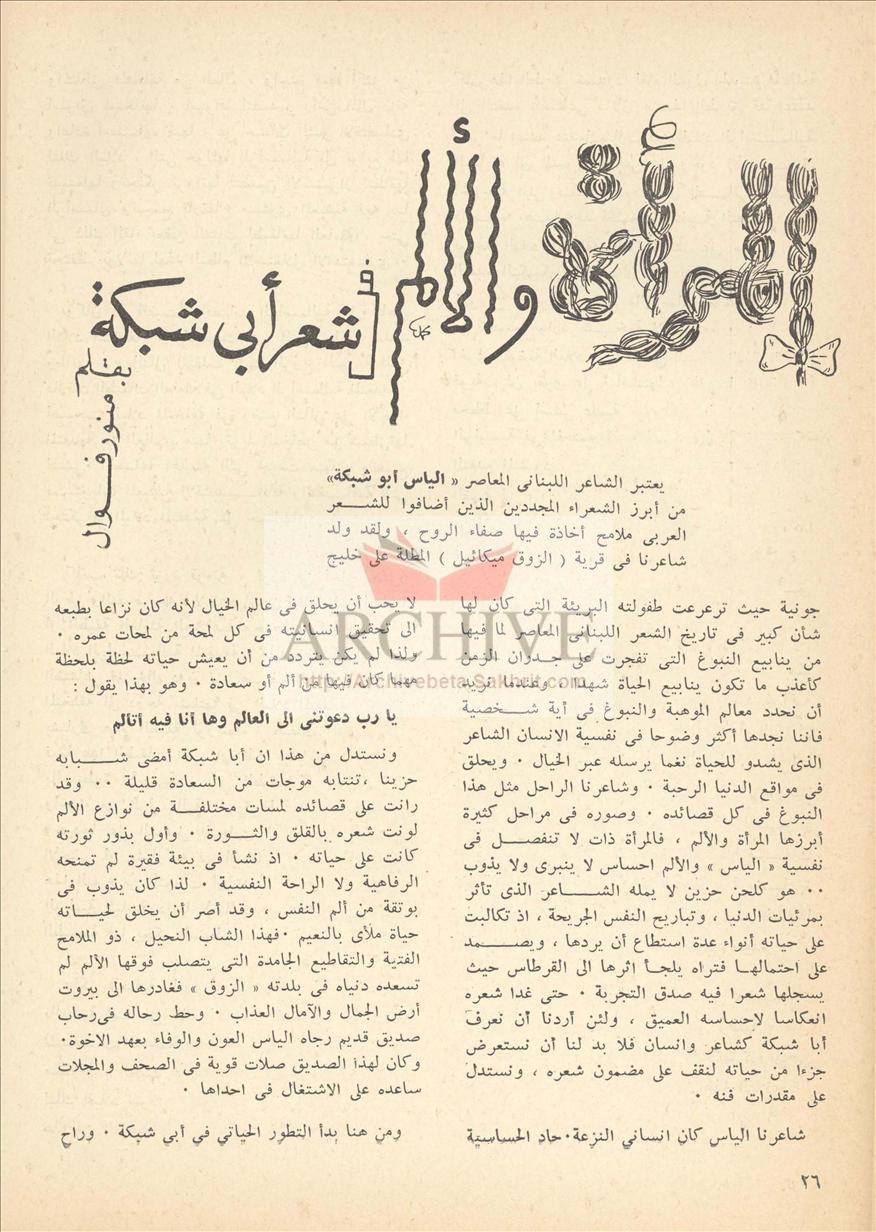 المرأة والألم
في
شعر أبي شبكة
بقلم
منور فوال
يعتبر الشاعر اللبنانى المعاصر « الياس أبو شبكة»
من أبرز الشعراء المجددين الذين أضافوا للشـــعر
العربى ملامح أخاذة فيها صفاء الروح ، ولقد ولد
شاعرنا فى قرية ( الزوق ميكائيل ) المطلة على خليج
جونية حيث ترعرعت طفولته البريئة التى كان لها
شأن كبير فى تاريخ الشعر اللبنانى المعاصر لما فيها
من ينابيع النبوغ التى تفجرت على جـدران الزمن
كأعذب ما تكون ينابيع الحياة شهدا ، وعندما نريد
أن نحدد معالم الموهبة والنبوغ فى أية شـــخصية
فاننا نجدها أكثر وضوحا فى نفسية الانسان الشاعر
الذى يشدو للحياة نغما يرسله عبر الخيال ٠ ويحلق
فى مواقع الدنيا الرحبة ٠ وشاعرنا الراحل مثل هذا
النبوغ فى كل قصائده ٠ وصوره فى مراحل كثيرة
أبرزها المرأة والألم ، فالمرأة ذات لا تنفصـــل فى
نفسية « الياس » والألم احساس لا ينبرى ولا يذوب
٠٠ هو كلحن حزين لا يمله الشـــاعر الذى تأثر
بمرئيات الدنيا ، وتباريح النفس الجريحة ، اذ تكالبت
على حياته أنواء عدة استطاع أن يردها ، ويصـــمد
على احتمالهـا فتراه يلجـأ اثرها الى القرطاس حيث
يسجلها شعرا فيه صدق التجربة ٠ حتى غدا شعره
انعكاسا لاحساسه العميق ، ولئن أردنا أن نعرف
أبا شبكة كشاعر وانسان فلا بد لنا أن نستعرض
جزءا من حياته لنقف على مضمون شعره ، ونستدل
على مقدرات فنه ٠
شاعرنا الياس كان انساني النزعة٠ حاد الحساسية
لا يحب أن يحلق فى عالم الخيال لأنه كان نزاعا بطبعه
الى تحقيق انسانيته فى كل لمحة من لمحات عمره ٠
ولذا لم يكن يتردد من أن يعيش حياته لحظة بلحظة
مهما كان فيها من ألم أو سعادة ٠ وهو بهذا يقول :
يا رب دعوتنى الى العالم وها أنا فيه أتالم
ونستدل من هذا ان أبا شبكة أمضى شـــبابه
حزينا ،تنتابه موجات من السعادة قليلة ٠٠ وقد
رانت على قصائده لمسات مختلفـــة من نوازع الألم
لونت شعره بالقلق والثـــورة ٠ وأول بذور ثورته
كانت على حياته ٠ اذ نشأ فى بيئة فقيرة لم تمنحه
الرفاهية ولا الراحة النفسية ٠ لذا كان يذوب فى
بوتقة من ألم النفس ، وقد أصر أن يخلق لحيـــاته
حياة ملأى بالنعيم ٠فهذا الشاب النحيل ، ذو الملامح
الفتية والتقاطيع الجامدة التى يتصلب فوقها الألم لم
تسعده دنياه فى بلدته « الزوق » فغادرها الى بيروت
أرض الجمال والآمال العذاب ٠ وحط رحاله فىرحاب
صديق قديم رجاه الياس العون والوفاء بعهد الاخوة٠
وكان لهذا الصديق صلات قوية فى الصحف والمجلات
ساعده على الاشتغال فى احداها ٠
ومن هنا بدأ التطور الحياتي في أبي شبكة ٠ وراح
٢٦
ARCHIVE
http://Archivebeta.Sakhrit.com